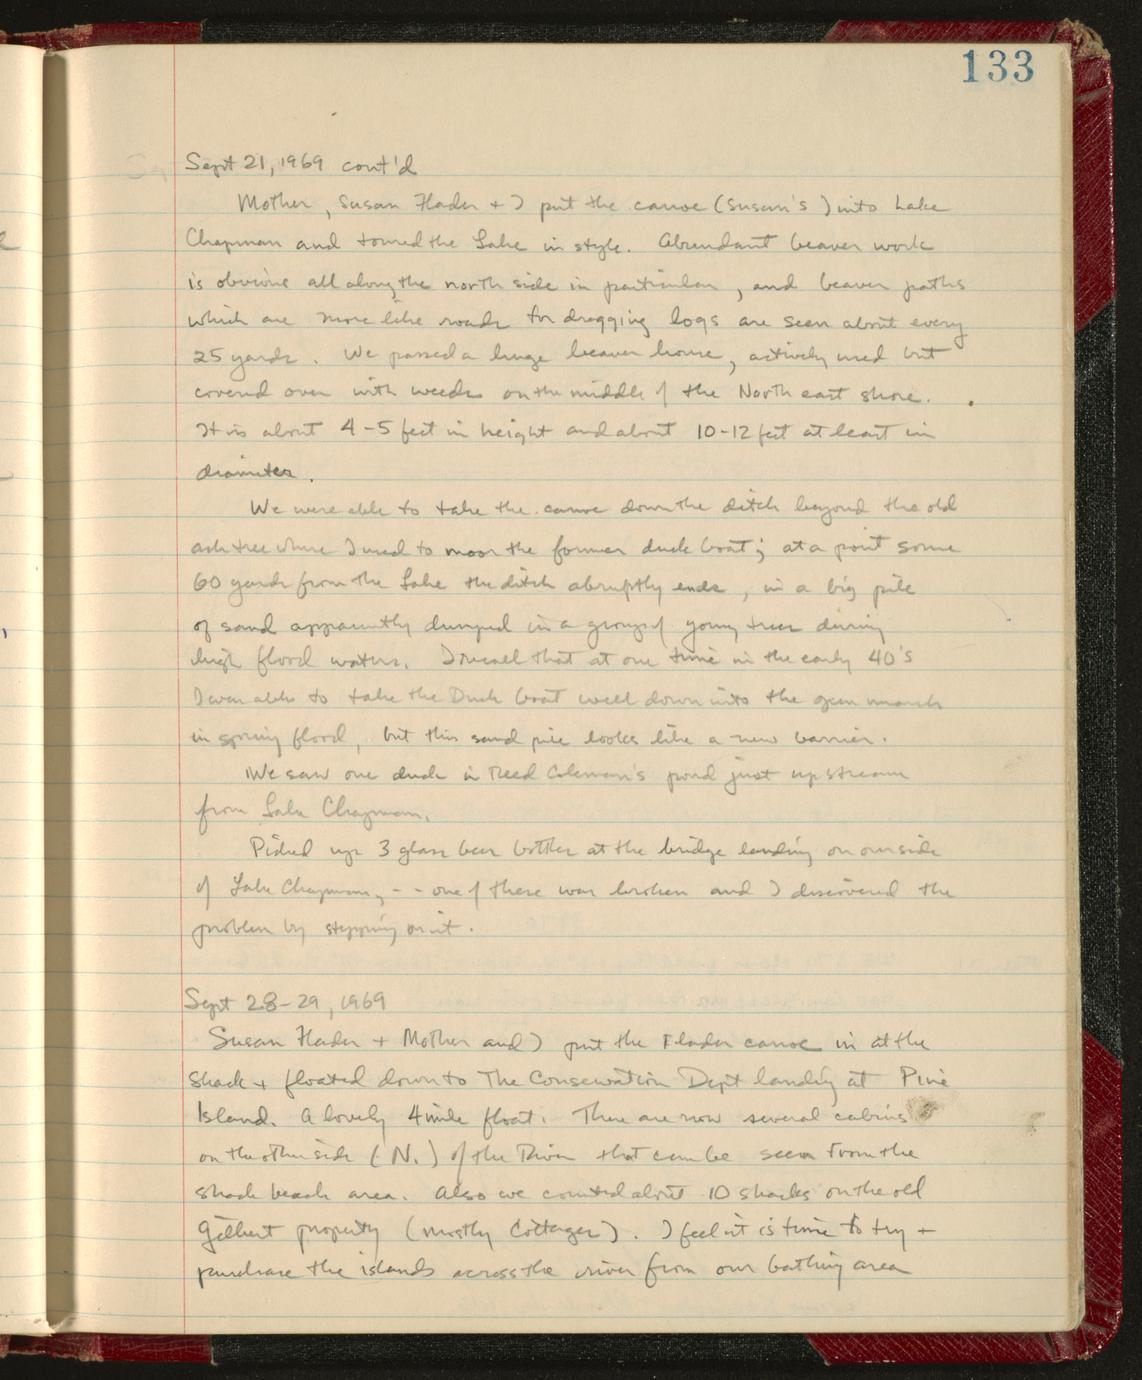 133
Sept 21, 1969 cont'd
Mother, Susan Flader + I put the canoe (Susan's) into Lake
Chapman and toured the Lake in style. Abundant beaver work
is obvious all along the north side in particular, and beaver paths
which are more like roads for dragging logs are seen about every
25 yards. We passed a huge beaver house, actively used but
covered over with weeds on the middle of the North east shore.
It is about 4-5 feet in height and about 10-12 feet at least in
diameter.
We were able to take the canoe down the ditch beyond the old
ash tree where I used to moor the former duck boat; at a point some
60 yards from the Lake the ditch abruptly ends, in a big pile
of sand apparently dumped in a group of young trees during
high flood waters. I recall that at one time in the early 40's
I was able to take the Duck boat well down into the marsh
in spring flood, but this sand pile looks like a new barrier.
We saw one duck in Reed Coleman's pond just upstream
from Lake Chapman.
Picked up 3 glass beer bottles at the bridge landing on our side
of Lake Chapman, -- one of these was broken and I discovered the
problem by stepping on it.
Sept 28-29, 1969
Susan Flader + Mother and I put the Flader canoe in at the
Shack + floated down to The Conservation Dept landing at Pine
Island. A lovely 4 mile float. There are now several cabins
on the other side (N.) of the River that can be seen from the
shack beach area. Also we counted about 10 shacks on the old
Gilbert property (mostly Cottages). I feel it is time to try +
purchase the islands across the river from our bathing area